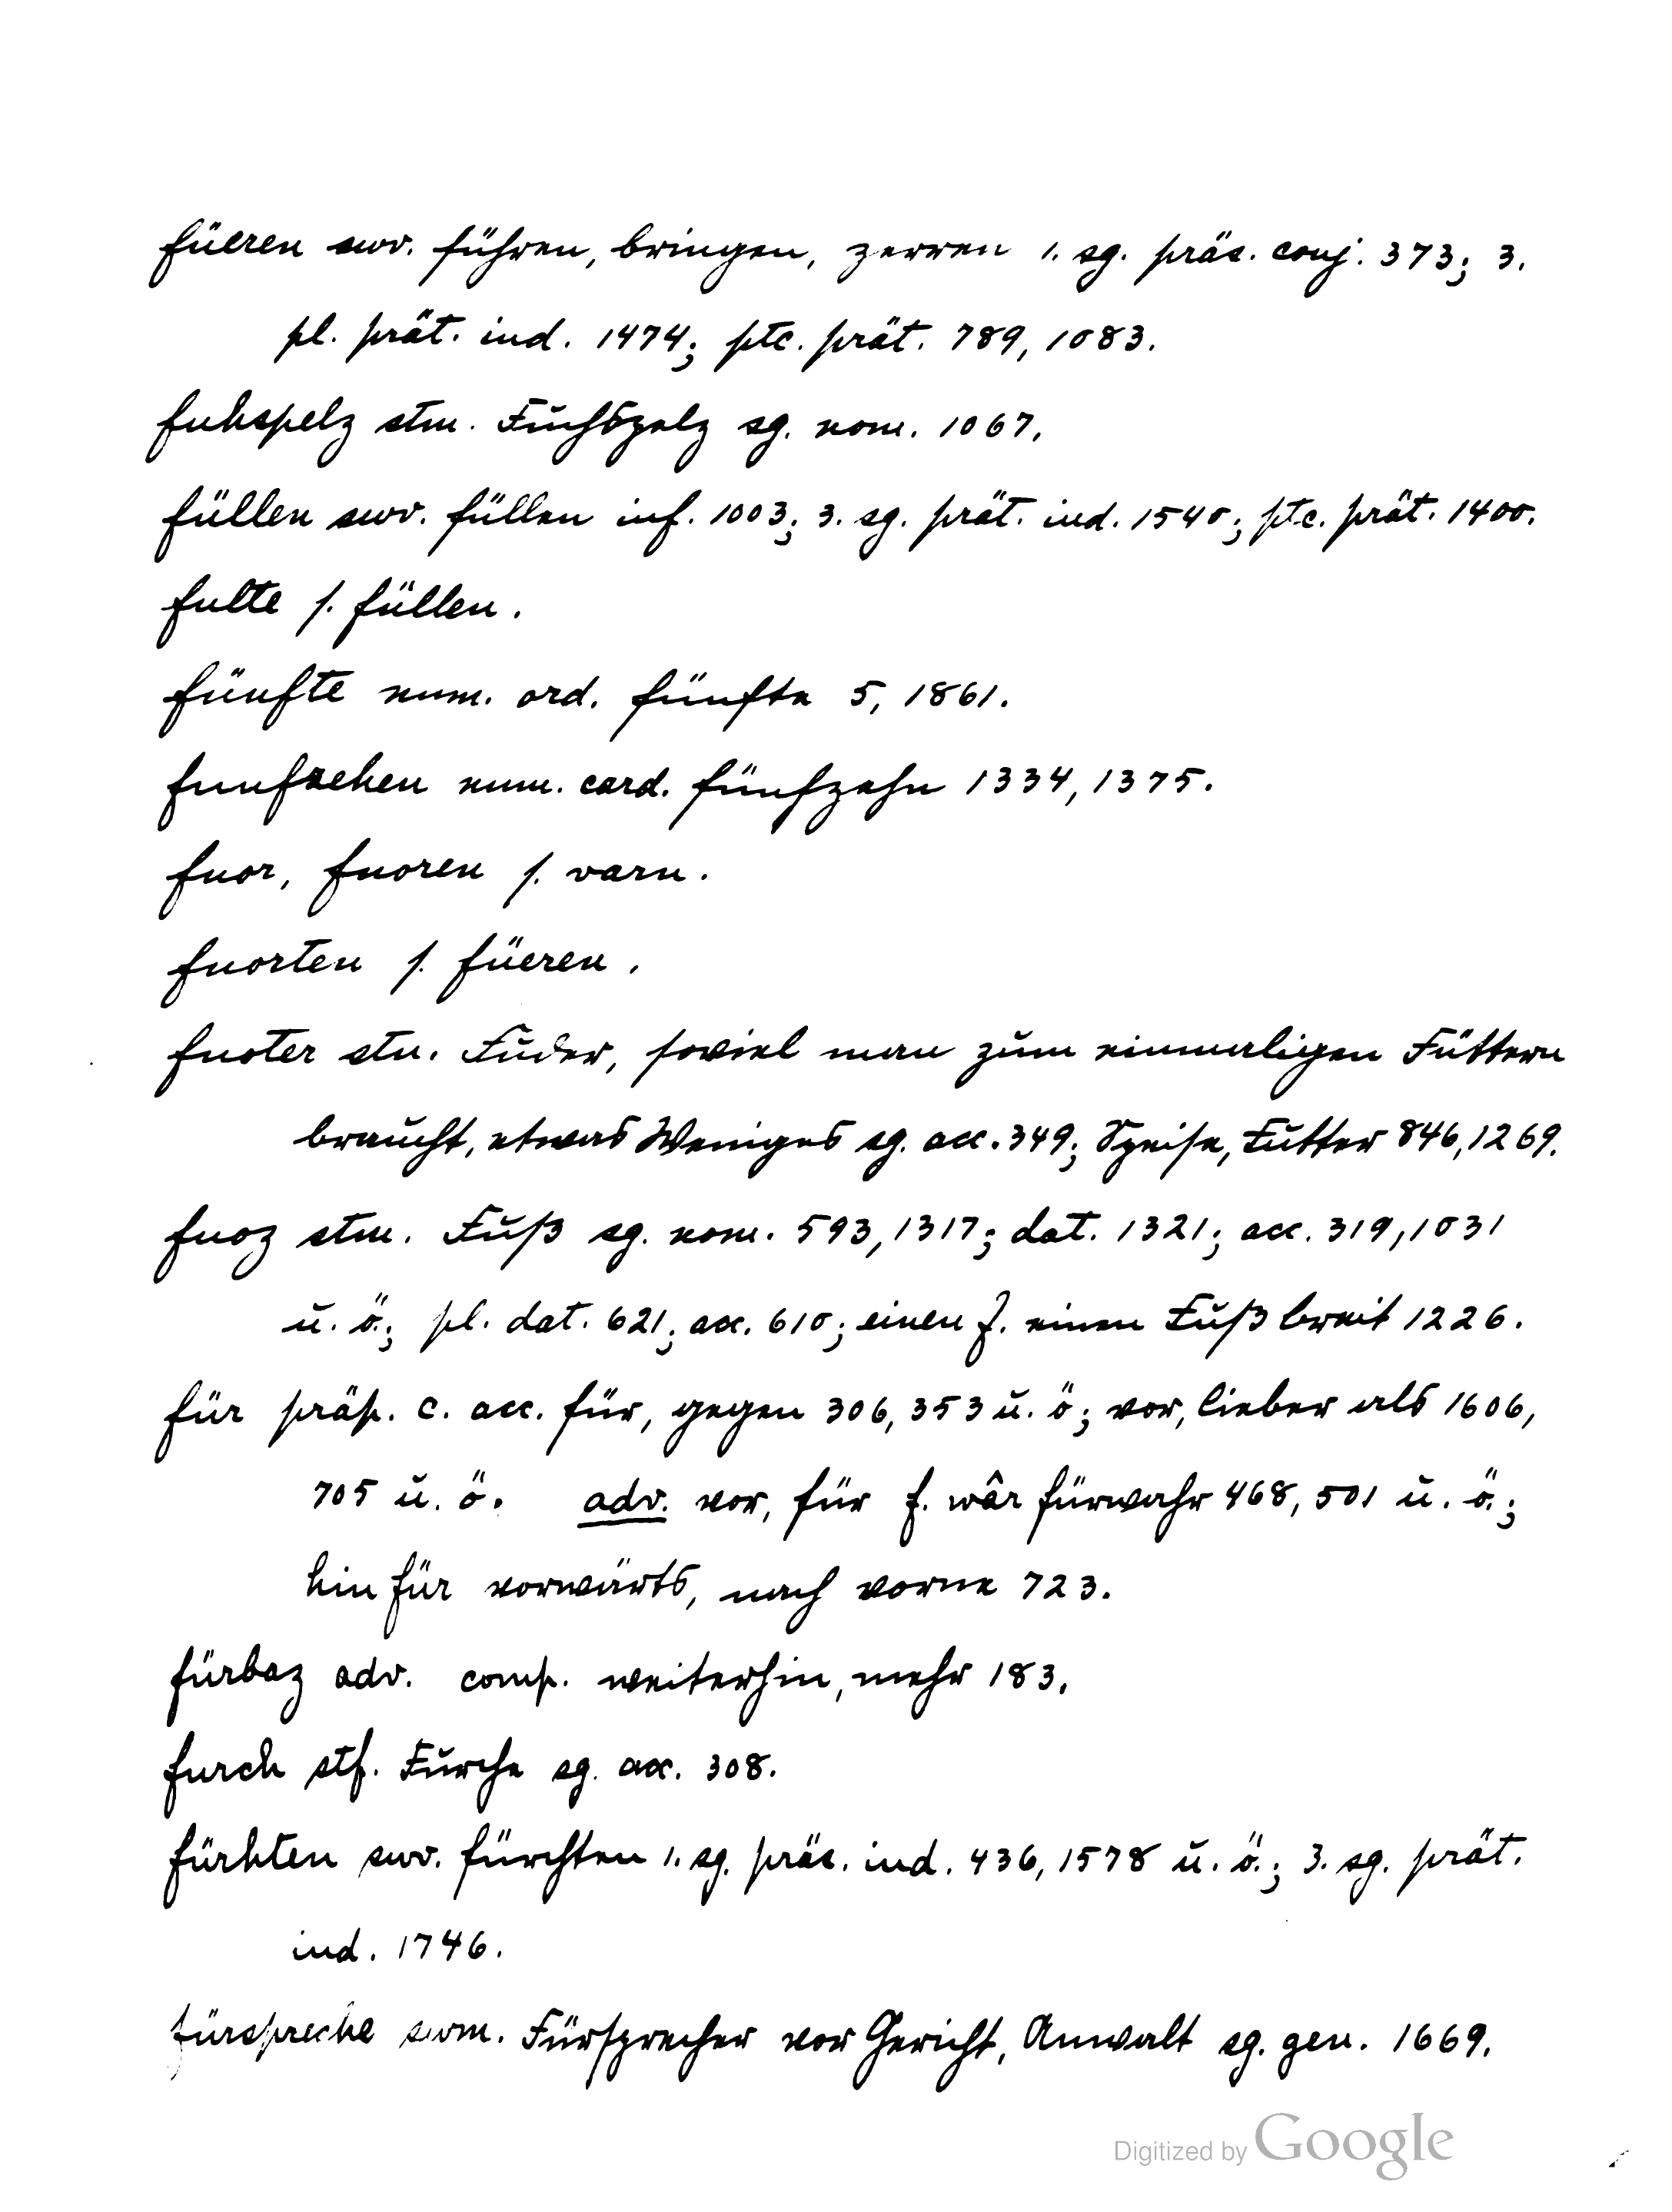 füeren swv. führen, bringen, zerren 1. sg. präs. conj. 373; 3.
pl. prät. ind. 1474; ptc. prät. 789, 1083.
fuhspelz stm. Fuchspelz sg. nom. 1067.
füllen swv. füllen inf. 1003; 3. sg. prät. ind. 1540; ptc. prät. 1400.
fulte s. füllen.
fünfte num. ord. fünfte 5, 1861.
funfzehen num. card. fünfzehn 1334, 1375.
fuor, fuoren s. varn.
fuorten s. füeren.
fuoter stn. Fuder, soviel man zum einmaligen Füttern
braucht, etwas Weniges sg. acc. 349; Speise, Futter 846, 1269.
fuoz stm. Fuß sg. nom. 593, 1317; dat. 1321; acc. 319, 1031
u. ö.; pl. dat. 621; acc. 610; einen f. einen Fuß breit 1226.
für präp. c. acc. für, gegen 306, 353 u. ö; vor, lieber als 1606,
705 u. ö. adv. vor, für f. wâr fürwahr 468, 501 u. ö.;
hin für vorwärts, nach vorne 723.
fürbaz adv. comp. weiterhin, mehr 183.
furch stf. Furche sg. acc. 308.
fürhten swv. fürchten 1. sg. präs. ind. 436, 1578 u. ö.; 3. sg. prät.
ind. 1746.
fürspreche swm. Fürsprecher vor Gericht, Anwalt sg. gen. 1669.
Digitized by Google